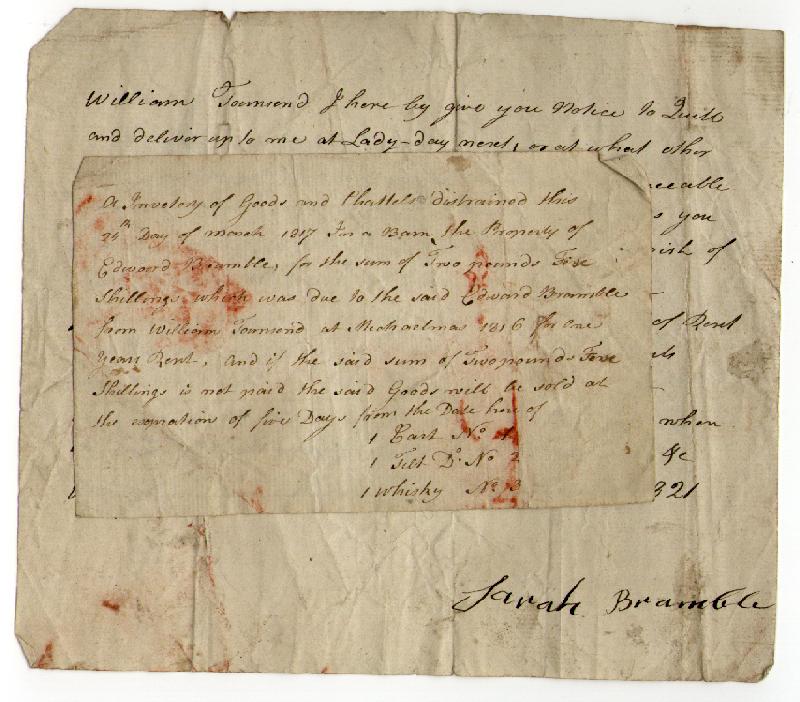 William Townsend I here by give you Notice to Quitt
and deliver up to me at Lady-day next, or at what other
ceeable
s you
rish of
of Rent
when
&c
321
Sarah Bramble
A Invetory of Goods and Chattels distrained this
24th Day of March 1817 In a Barn, the Property of
Edward Bramble, for the sum of Two pounds Five
Shillings which was due to the said Edward Bramble
from William Townsend at Michaelmas 1816 for one
Years Rent, and if the said sum of Two pounds Five
Shillings is not paid the said Goods will be sold at
the expration of five Days from the Date here of
1 Cart No 1
1 Tilt Do No 2
1 Whisky No 3